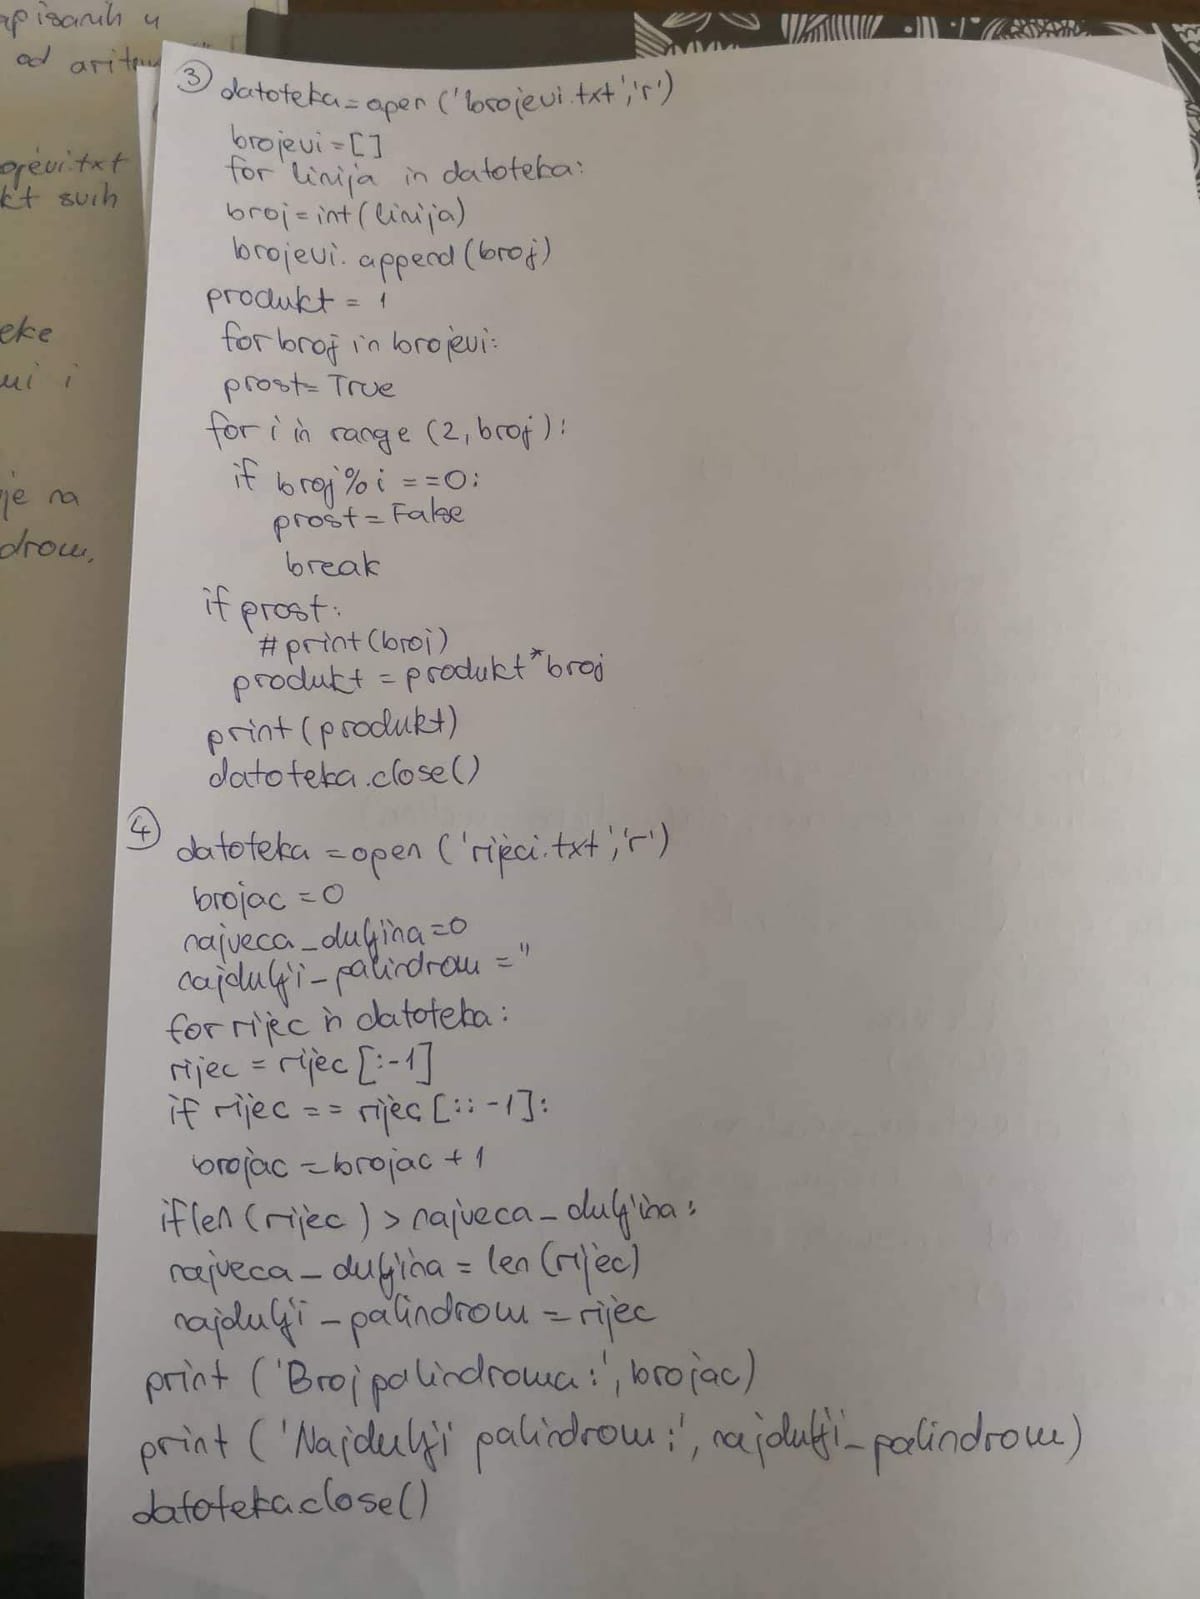 apisanih u
od aritm
ojevi.txt
kt svih
eke
ui i
je na
drom.
③ datoteka=open('brojevi.txt','r')
brojevi=[]
for linija in datoteka:
broj=int(linija)
brojevi.append(broj)
produkt = 1
for broj in brojevi:
prost=True
for i in range (2,broj):
if broj%i ==0:
prost=False
break
if prost:
#print(broj)
produkt = produkt*broj
print(produkt)
datoteka.close()
④ datoteka =open ('rijeci.txt','r')
brojac =0
najveca_duljina=0
najdulji_palindrom =''
for rijec in datoteka:
rijec = rijec [:-1]
if rijec == rijec [::-1]:
brojac =brojac +1
if len (rijec) > najveca_duljina:
najveca_duljina = len (rijec)
najdulji_palindrom = rijec
print ('Broj palindroma:', brojac)
print ('Najdulji palindrom:', najdulji_palindrom)
datoteka.close()